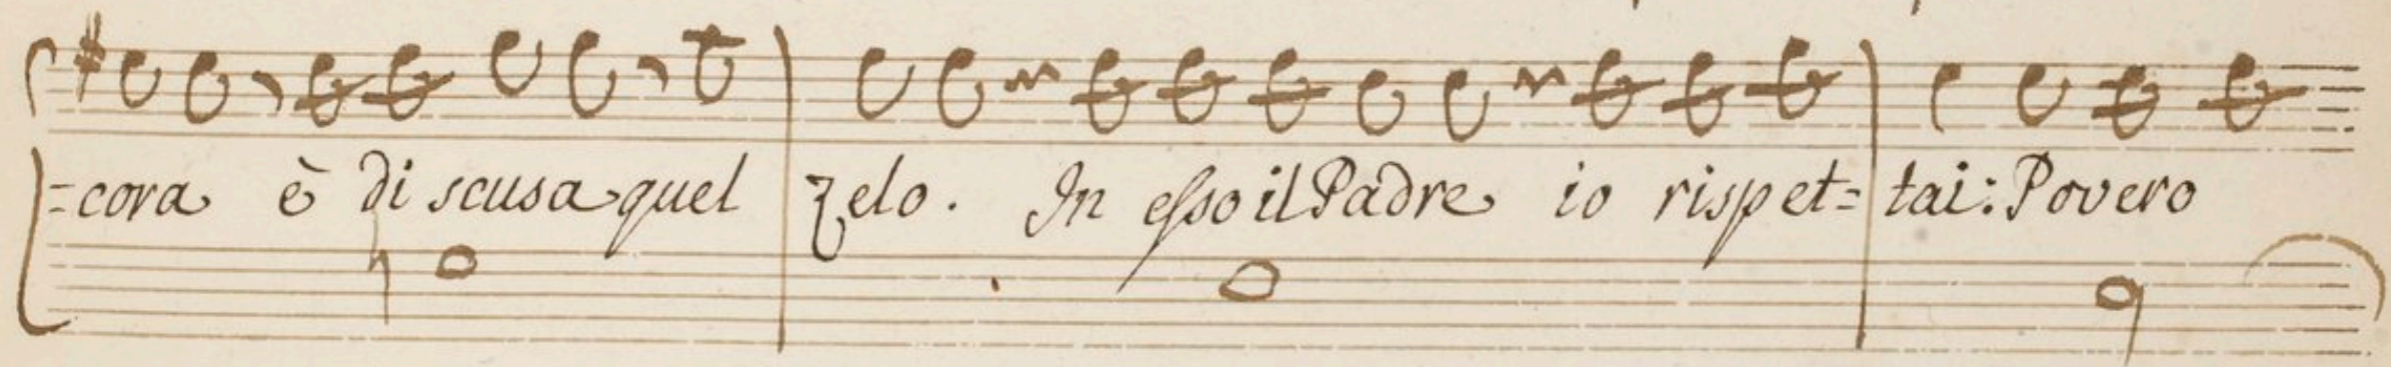 =cora è di scusa quel zelo. In esso il Padre io rispet=tai: Povero